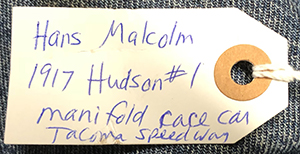 Hans Malcolm
1917 Hudson #1
manifold race car
Tacoma Speedway